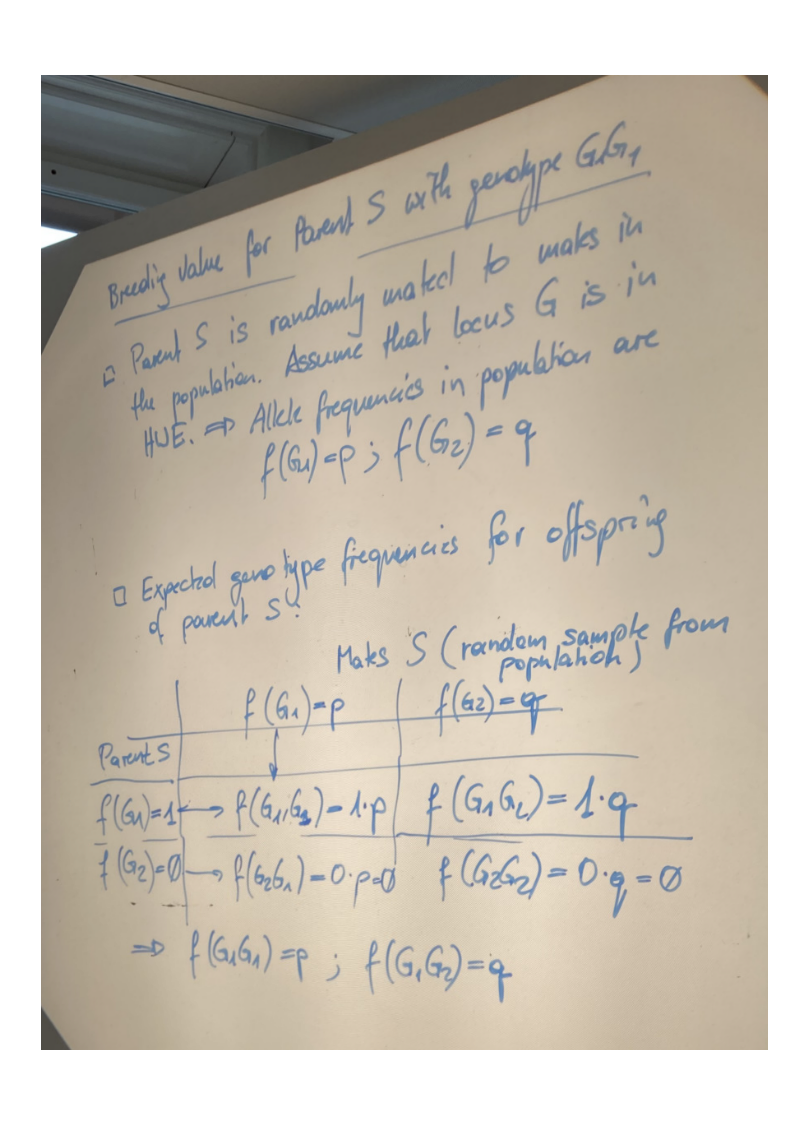 Breeding Value for Parent S with genotype G1G1
□ Parent S is randomly mated to mates in
the population. Assume that locus G is in
HWE. ⇒ Allele frequencies in population are
f(G1)=p ; f(G2) = q
□ Expected genotype frequencies for offspring
of parent S:
Mates S (random sample from
population)
f(G1)=p f(G2)=q
Parent S
f(G1)=1 ↔ f(G1,G1)=1·p f(G1G2)=1·q
f(G2)=0 → f(G2G1)=0·p=0 f(G2G2)=0·q=0
⇒ f(G1G1)=p ; f(G1G2)=q